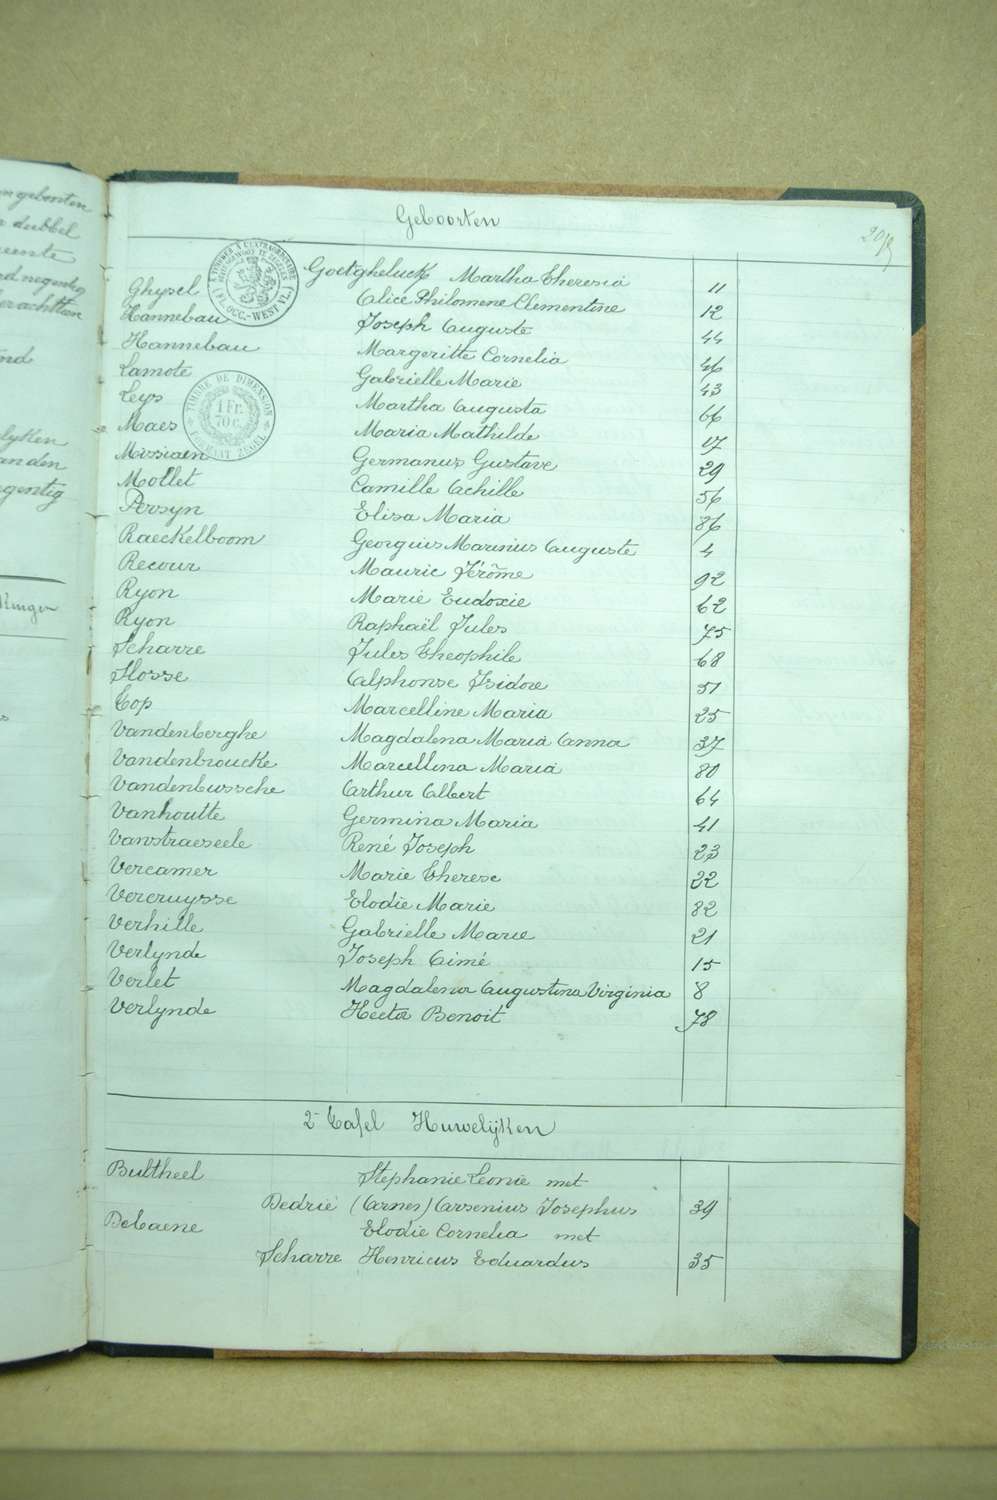 Geboorten
Goetgheluck Martha Theresia 11
Ghysel Alice Philomene Clementine 12
Hannebau Joseph Auguste 44
Hannebau Margeritte Cornelia 46
Lamote Gabrielle Marie 43
Leys Martha Augusta 66
Maes Maria Mathilde 17
Missiaen Germanus Gustave 29
Mollet Camille Achille 56
Persyn Elisa Maria 86
Raeckelboom Georgius Marinus Auguste 4
Recour Mauric Jérôme 92
Ryon Marie Eudoxie 62
Ryon Raphaël Jules 75
Scharre Jules Theophile 68
Slosse Alphonse Isidore 51
Top Marcelline Maria 25
Vandenberghe Magdalena Maria Anna 37
Vandenbroucke Marcellina Maria 80
Vandenbussche Arthur Albert 64
Vanhoutte Germina Maria 41
Vanstraeseele René Joseph 23
Vercamer Marie Therese 22
Vercruysse Elodie Marie 82
Verhille Gabrielle Marie 21
Verlynde Joseph Aimé 15
Verlet Magdalena Augustina Virginia 8
Verlynde Hector Benoit 78
2e Tafel Huwelijken
Bultheel Stephanie Leonie met
Dedrie (Arnes) Arsenius Josephus 39
DeCaene Elodie Cornelia met
Scharre Henricus Eduardus 35
TIMBRE DE DIMENSION
1 Fr.
70 c.
FORMAAT ZEGEL
(FL. OCC.-WEST VL.)